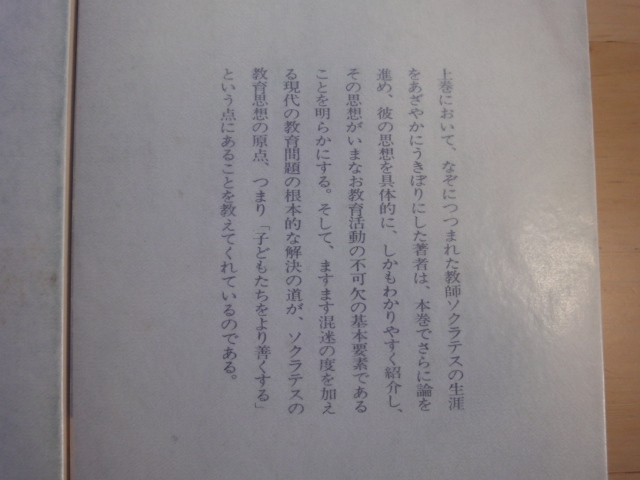 上巻において、なぞにつつまれた教師ソクラテスの生涯
をあざやかにうきぼりにした著者は、本巻でさらに論を
進め、彼の思想を具体的に、しかもわかりやすく紹介し、
その思想がいまなお教育活動の不可欠の基本要素である
ことを明らかにする。そして、ますます混迷の度を加え
る現代の教育問題の根本的な解決の道が、ソクラテスの
教育思想の原点、つまり「子どもたちをより善くする」
という点にあることを教えてくれているのである。